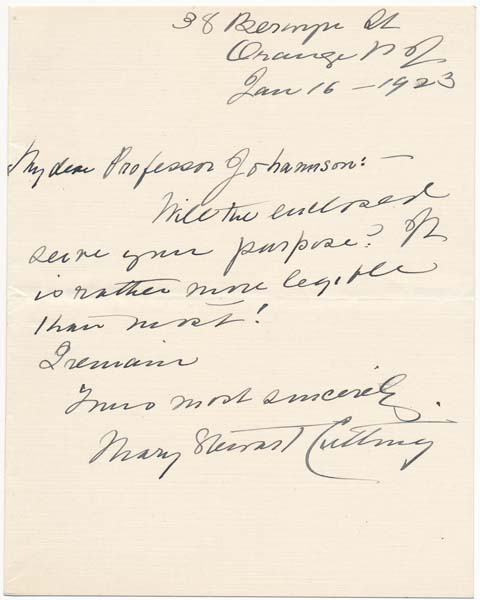 38 Berwyn St
Orange N J
Jan 16 - 1923
My dear Professor Johannson: -
Will the enclosed
serve your purpose? It
is rather more legible
than most!
I remain
Yours most sincerely.
Mary Stewart Cutting